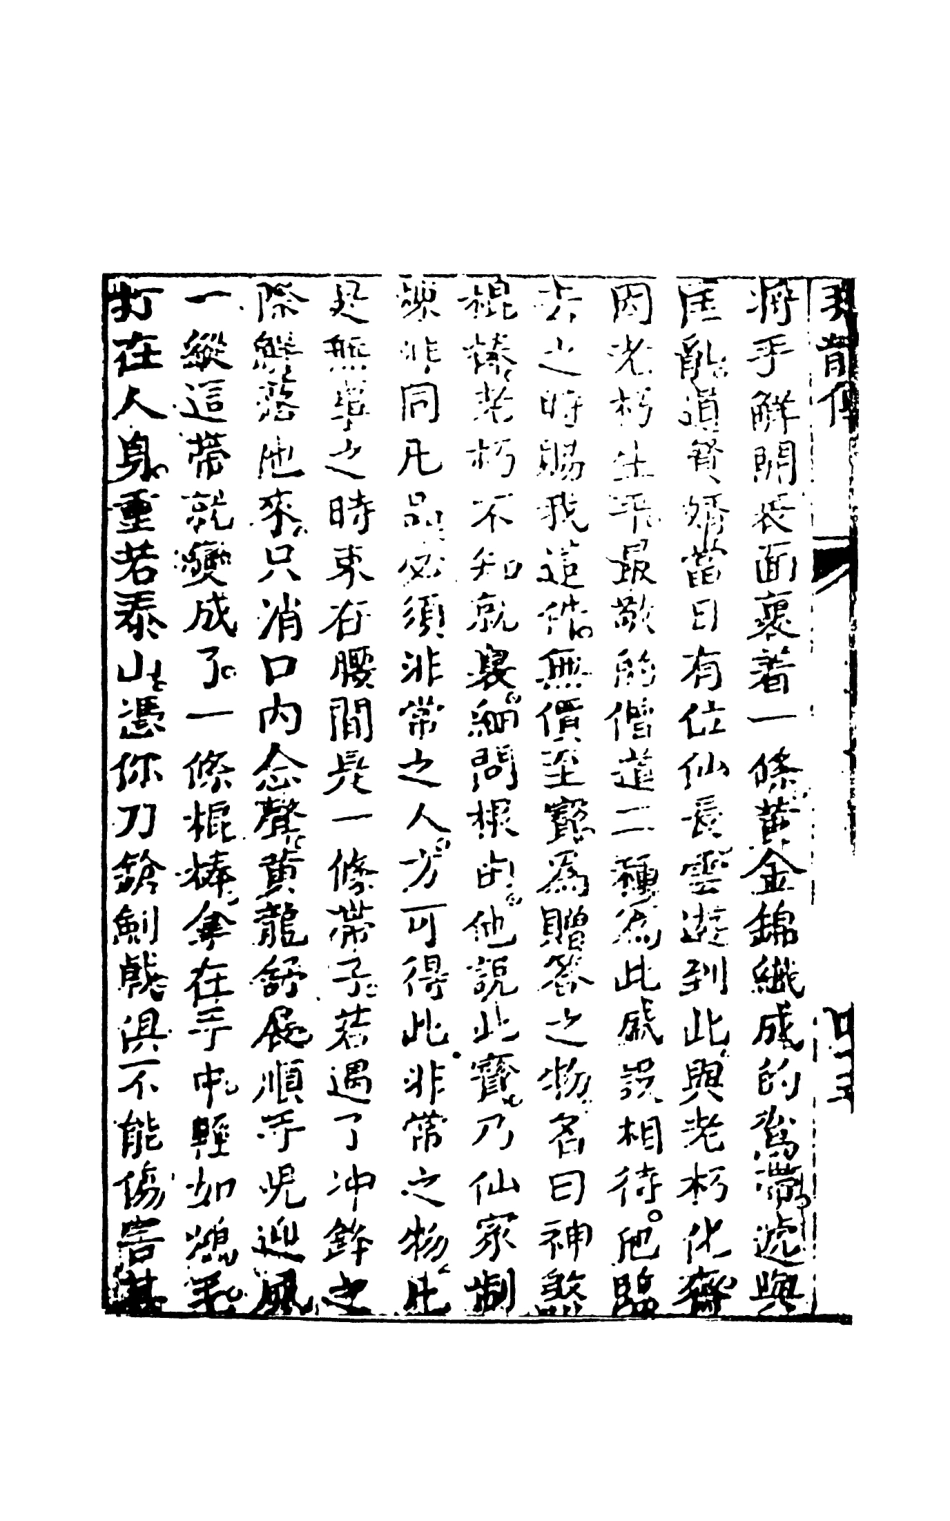 將手解開衣面裏着一條黄金錦織成的鸞帶遞與
匡胤道賢壻當日有位仙長雲遊到此與老朽化齋
因老朽生平最敬的僧道二種為此盛設相待他臨
去之時賜我這件無價至寳為贈答之物名曰神煞
棍棒老朽不知就裏細問根由他說此寳乃仙家制
煉非同凡品必須非常之人方可得此非常之物此
是無事之時束在腰間是一條帶子若遇了冲鋒之
際解落他來只消口内念聲黄龍舒展順手児迎風
一縱這帶就變成了一條棍棒拿在手中輕如鴻毛
打在人身重若泰山憑你刀鎗劍戟俱不能傷害其